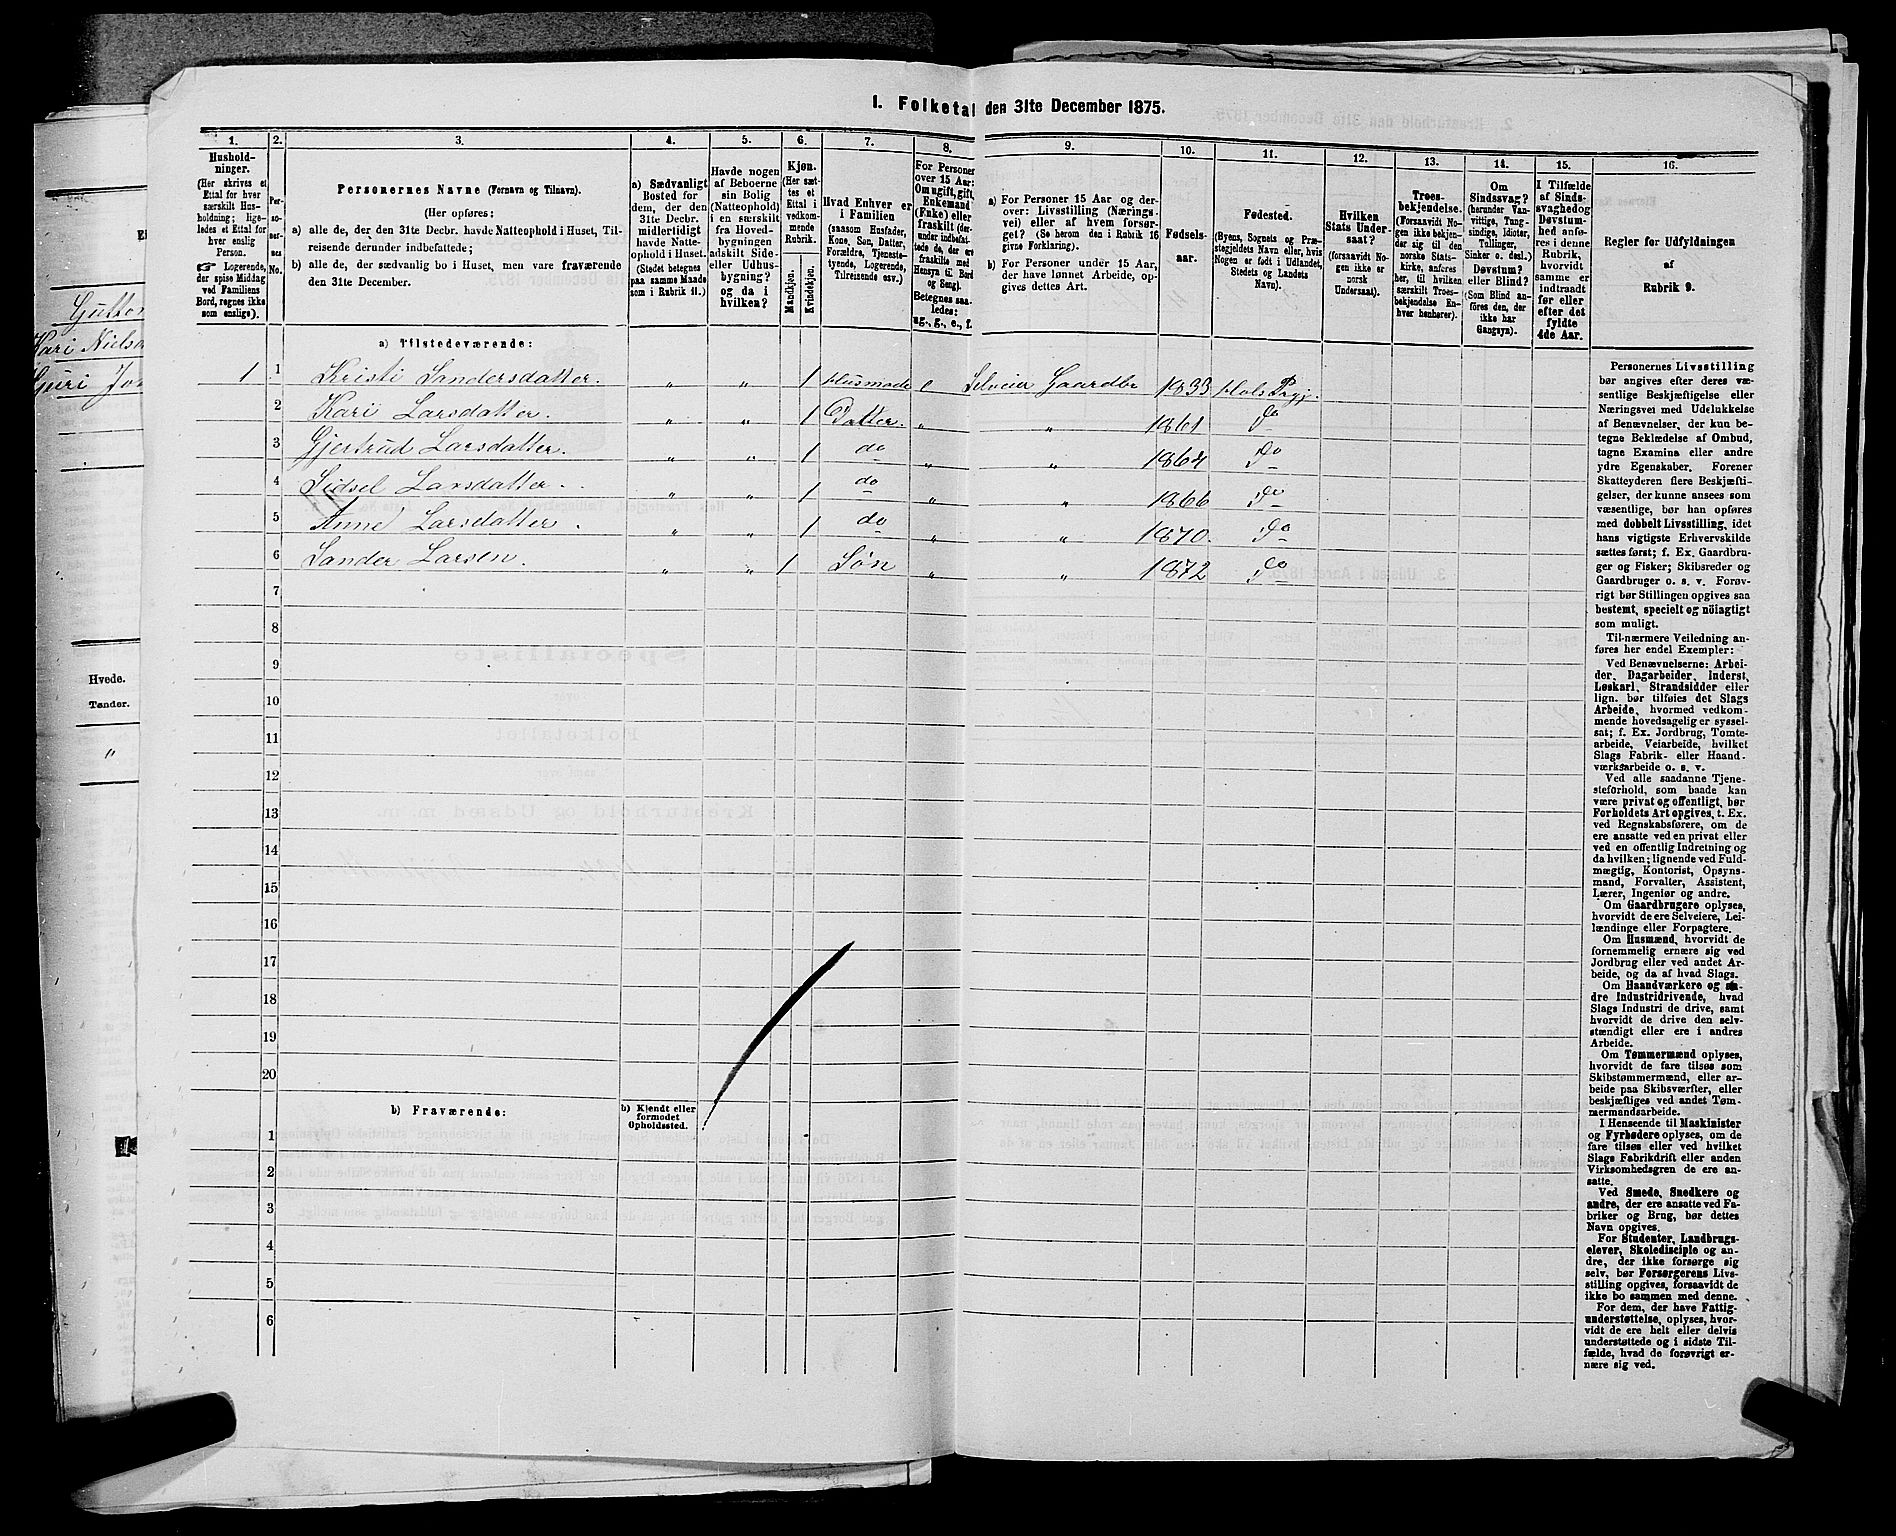 1. Folketal den 31te December 1875.
1. 2. 3. 4. 5. 6. 7. 8. 9. 10. 11. 12. 13. 14. 15. 16.
Hushold-
ninger.
(Her skrives et
Ettal for hver
særskilt Hus-
holdning; lige-
ledes et Ettal for
hver enslig
Person.
☞ Logerende,
der spise Middag
ved Familiens
Bord, regnes ikke
som enslige).
Per-
so-
ner-
nes
No.
Personernes Navne (Fornavn og Tilnavn).
(Her opføres:
a) alle de, der den 31te Decbr. havde Natteophold i Huset, Til-
reisende derunder indbefattede;
b) alle de, der sædvanlig bo i Huset, men vare fraværende
den 31te December.
a) Sædvanligt
Bosted for
dem, der den
31te Decbr.
midlertidigt
havde Natte-
ophold i Huset.
(Stedet betegnes
paa samme Maade
som i Rubrik 11.)
Havde nogen
af Beboerne
sin Bolig
(Natteophold)
i en særskilt
fra Hoved-
bygningen
adskilt Side-
eller Udhus-
bygning?
og da i
hvilken?
Kjøn.
(Her sæt-
tes et
Ettal i
vedkom-
mende
Rubrik.
Mandkjøn.
Kvindekjøn.
Hvad Enhver er
i Familien
(saasom Husfader,
Kone, Søn, Datter,
Forældre, Tjeneste-
tyende, Logerende,
Tilreisende osv.)
For Personer
over 15 Aar:
Om ugift, gift,
Enkemand
(Enke) eller
fraskilt (der-
under indbefat-
tede de, der ere
fraskilte med
Hensyn til Bord
og Seng).
Betegnes saa-
ledes:
ug., g., e., f.
a) For Personer 15 Aar og der-
over: Livsstilling (Nærings-
vei) eller af hvem forsør-
get? (Se herom den i Rubrik 16
givne Forklaring).
b) For Personer under 15 Aar,
der have lønnet Arbeide, op-
gives dettes Art.
Fødsels-
aar.
Fødested.
(Byens, Sognets og Præ-
stegjeldets Navn eller, hvis
Nogen er født i Udlandet,
Stedets og Landets
Navn).
Hvilken
Stats Under-
saat?
(forsaavidt No-
gen ikke er
norsk
Undersaat).
Troes-
bekjendelse.
(Forsaavidt No-
gen ikke bekjen-
der sig til den
norske Stats-
kirke, anføres
her, til hvilken
særskilt Troes-
bekjendelse En-
hver henhører).
Om
Sindssvag?
(herunder Van-
vittige, Idioter,
Tullinger,
Sinker o. desl.)
Døvstum?
eller Blind?
(Som Blind an-
føres den, der
ikke har
Gangsyn).
I Tilfælde
af Sinds-
svaghed og
Døvstum-
hed anfø-
res i denne
Rubrik,
hvorvidt
samme er
indtraadt
før eller
efter det
fyldte
4de Aar.
Regler for Udfyldningen
af
Rubrik 9.
a) Tilstedeværende:
1 1 Kristi Sandersdatter. " " 1 Husmode e Selveier Gaardbr 1833 Hols Prgj.
2 Kari Larsdatter. " " 1 Datter. " " 1861 Do
3 Gjertrud Larsdatter. " " 1 do " " 1864 Do
4 Sidsel Larsdatter. " " 1 do " " 1866 Do
5 Anne Larsdatter. " " 1 do " " 1870. Do
6 Sander Larsen. " " 1 Søn " " 1872 Do
7
8
9
10
11
12
13
14
15
16
17
18
19
20
b) Fraværende:
b) Kjendt eller
formodet
Opholdssted.
1
2
3
4
5
6
Personernes Livsstilling
bør angives efter deres væ-
sentlige Beskjæftigelse eller
Næringsvei med Udelukkelse
af Benævnelser, der kun be-
tegne Beklædelse af Ombud,
tagne Examina eller andre
ydre Egenskaber. Forener
Skatteyderen flere Beskjæfti-
gelser, der kunne ansees som
væsentlige, bør han opføres
med dobbelt Livsstilling, idet
hans vigtigste Erhvervskilde
sættes først; f. Ex. Gaardbru-
ger og Fisker; Skibsreder og
Gaardbruger o. s. v. Forøv-
rigt bør Stillingen opgives saa
bestemt, specielt og nöiagtigt
som muligt.
Til nærmere Veiledning an-
føres her endel Exempler:
Ved Benævnelserne: Arbei-
der, Dagarbeider, Inderst,
Løskarl, Strandsidder eller
lign. bør tilføies det Slags
Arbeide, hvormed vedkom-
mende hovedsagelig er syssel-
sat; f. Ex. Jordbrug, Tomte-
arbeide, Veiarbeide, hvilket
Slags Fabrik- eller Haand-
værksarbeide o. s. v.
Ved alle saadanne Tjene-
steforhold, som baade kan
være privat og offentligt, bør
Forholdets Art opgives, t. Ex.
ved Regnskabsførere, om de
ere ansatte ved en privat eller
ved en offentlig Indretning og
da hvilken; lignende ved Fuld-
mægtig, Kontorist, Opsyns-
mand, Forvalter, Assistent,
Lærer, Ingeniør og andre.
Om Gaardbrugere oplyses,
hvorvidt de ere Selveiere, Lei-
lændinge eller Forpagtere.
Om Husmænd, hvorvidt de
fornemmelig ernære sig ved
Jordbrug eller ved andet Ar-
beide, og da af hvad Slags.
Om Haandværkere og an-
dre Industridrivende, hvad
Slags Industri de drive, samt
hvorvidt de drive den selv-
stændigt eller ere i andres
Arbeide.
Om Tømmermænd oplyses,
hvorvidt de fare tilsøs som
Skibstømmermænd, eller ar-
beide paa Skibsværfter, eller
beskjæftiges ved andet Tøm-
mermandsarbeide.
I Henseende til Maskinister
og Fyrbødere oplyses, om de
fare tilsøs eller ved hvilket
Slags Fabrikdrift eller anden
Virksomhedsgren de ere an-
satte.
Ved Smede, Snedkere og
andre, der ere ansatte ved Fa-
briker og Brug, bør dettes
Navn opgives.
For Studenter, Landbrugs-
elever, Skoledisciple og an-
dre, der ikke forsørge sig
selv, bør Forsørgerens Livs-
stilling opgives, forsaavidt de
ikke bo sammen med denne.
For dem, der have Fattig-
understøttelse, oplyses, hvor-
vidt de ere helt eller delvis
understøttede og i sidste Til-
fælde, hvad de forøvrigt er-
nære sig ved.
Kari Niels
Guri Jo
Hvede.
Tønder.
"